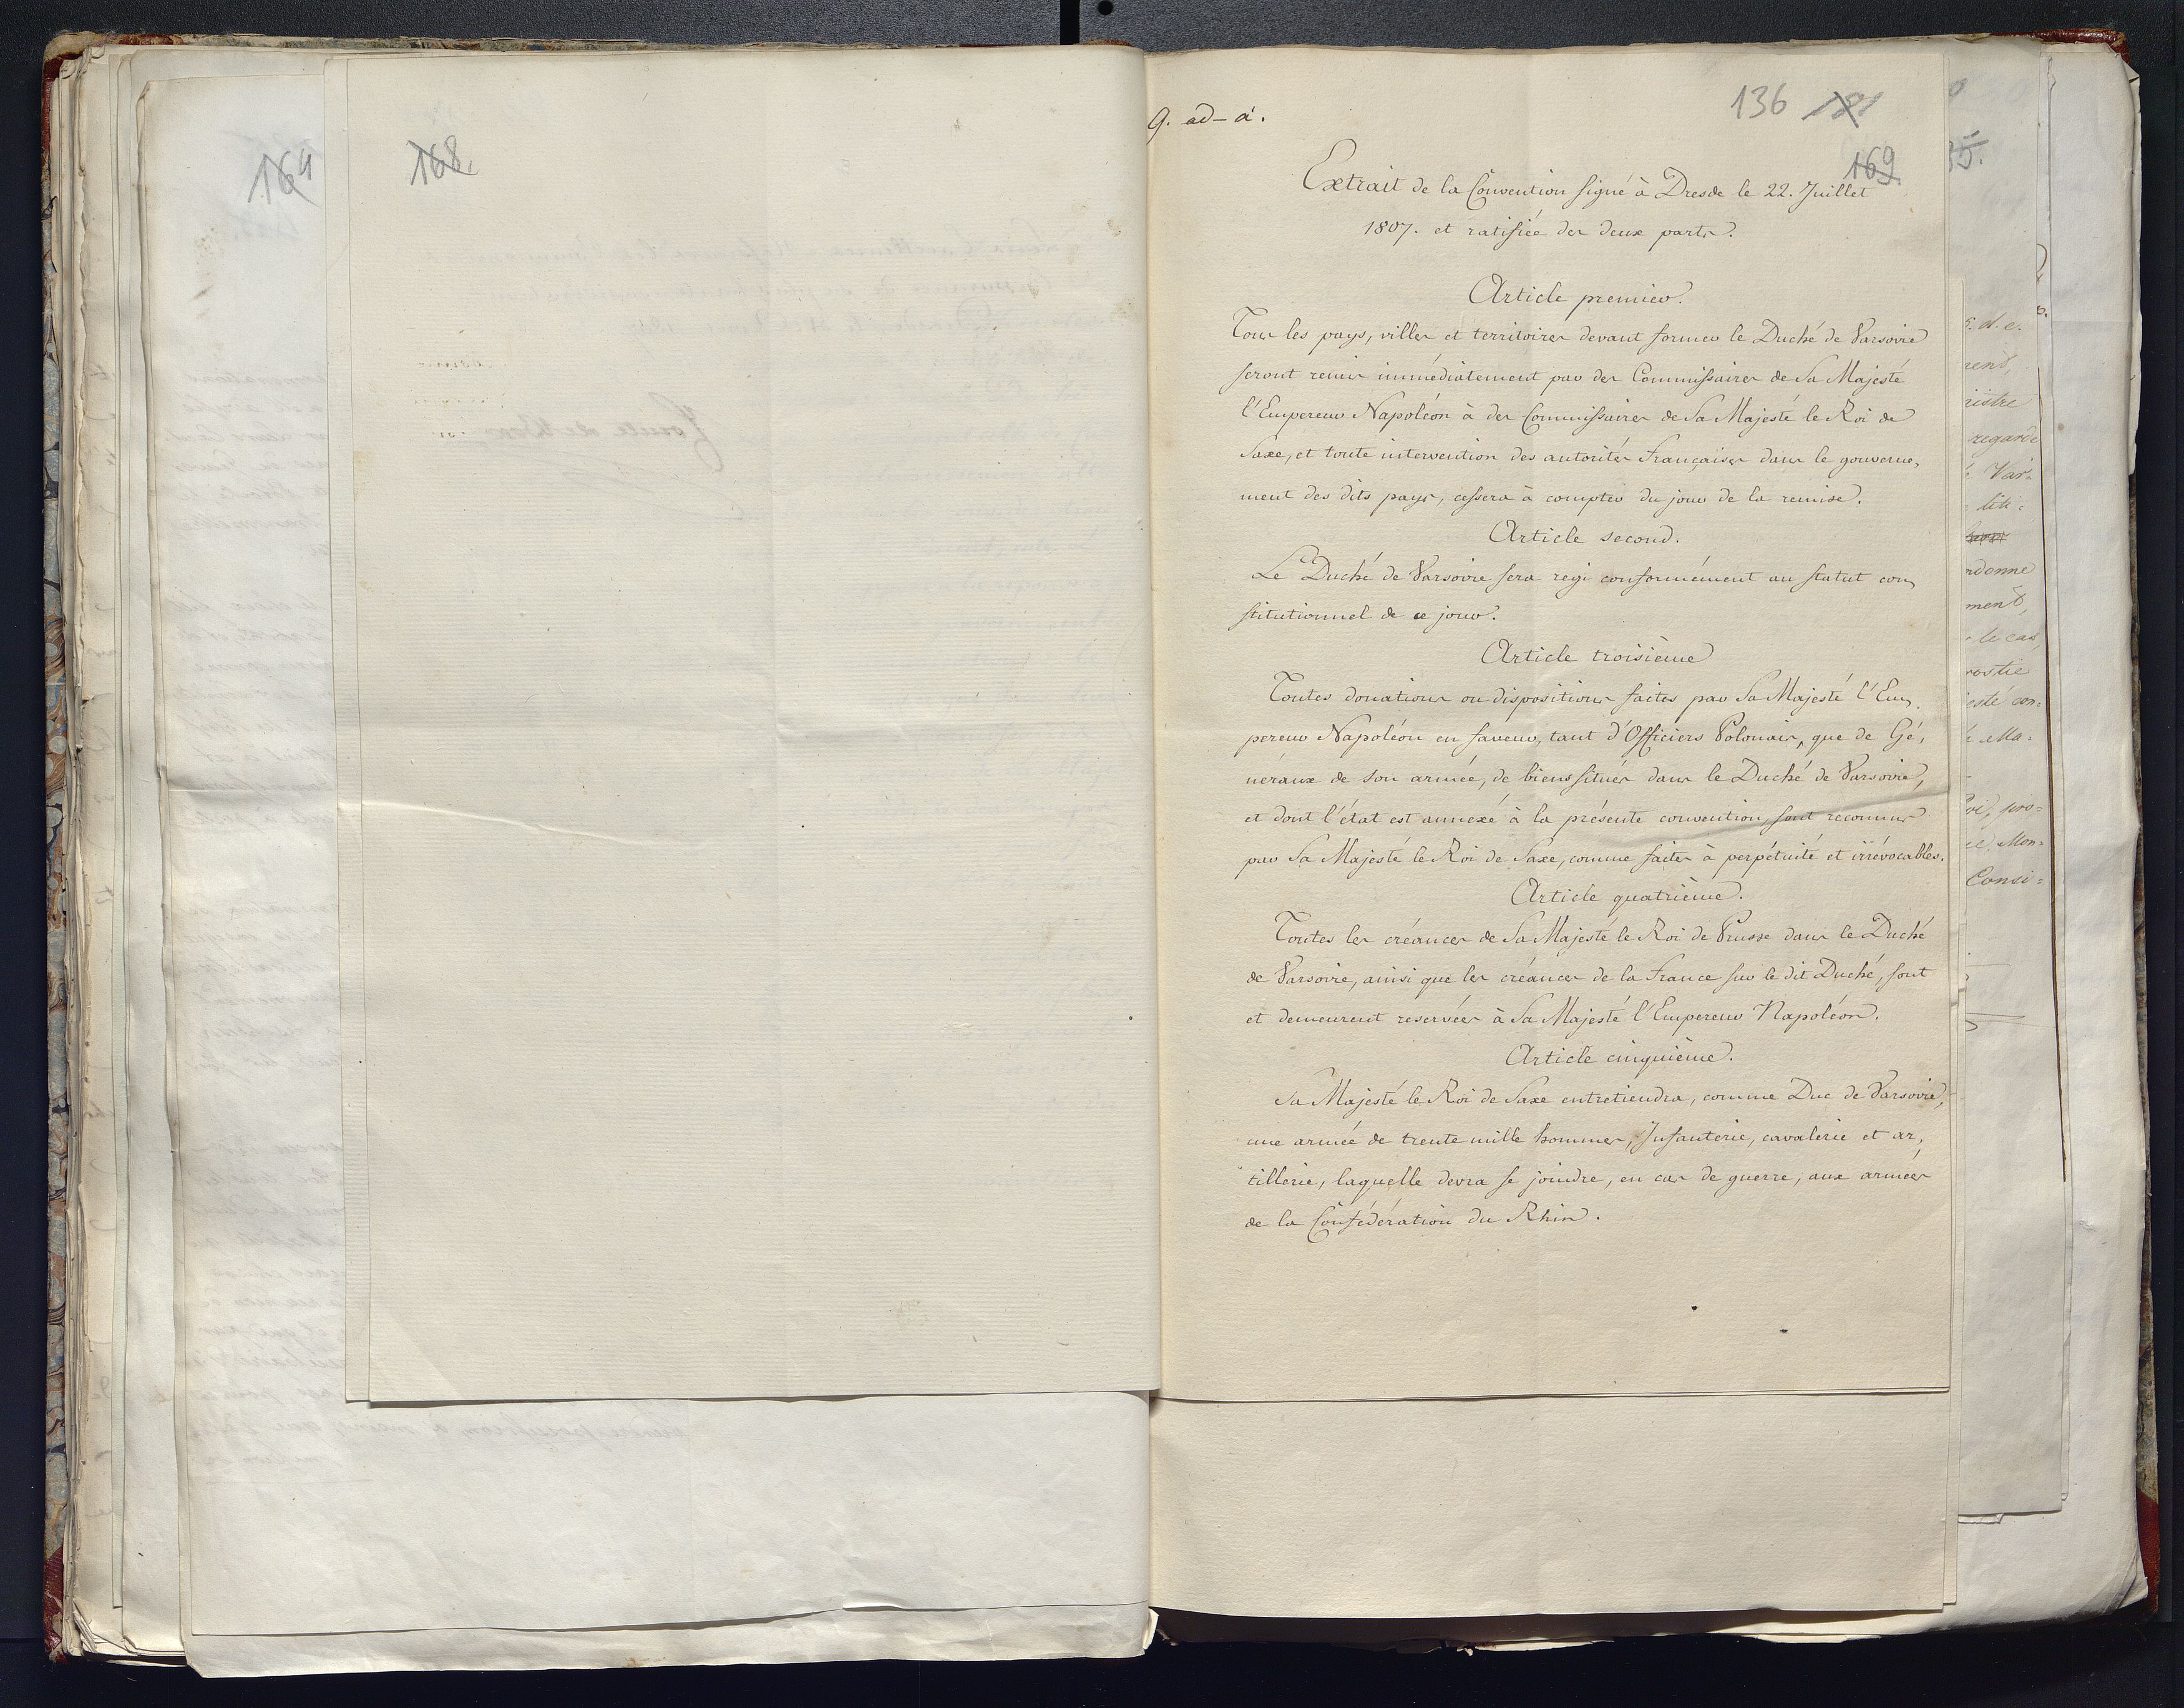 164
168.
9. ad-a.
136 181
169.
Extrait de la Convention signé à Dresde le 22. Juillet
1807. et ratifiée des deux parts.
Article premier.
Tous les pays, villes et territoires devant former le Duché de Varsovie
seront remis immédiatement par des Commissaires de Sa Majesté
l'Empereur Napoléon à des Commissaires de Sa Majesté le Roi de
Saxe, et toute intervention des autorités Françaises dans le gouverne,
ment des dits pays, cessera à compter du jour de la remise.
Article second.
Le Duché de Varsovie sera regi conformément au statut con,
stitutionnel de ce jour.
Article troisième
Toutes donations ou dispositions faites par Sa Majesté l'Em,
pereur Napoléon en faveur, tant d'Officiers Polonais, que de Gé,
néraux de son armée, de biens situés dans le Duché de Varsovie,
et dont l'état est annexé à la présente convention, sont reconnus
par Sa Majesté le Roi de Saxe, comme faites à perpétuité et irrévocables.
Article quatrième.
Toutes les créances de Sa Majesté le Roi de Prusse dans le Duché
de Varsovie, ainsi que les créances de la France sur le dit Duché, sont
et demeurent reservées à Sa Majesté l'Empereur Napoléon.
Article cinquième.
Sa Majesté le Roi de Saxe entretiendra, comme Duc de Varsovie,
une armée de trente mille hommes, Infanterie, cavalerie et ar,
tillerie, laquelle devra se joindre, en cas de guerre, aux armées
de la Confédération du Rhin.
35.
regarde
Var=
le cas
esté con=
Ma=
Mon=
Consi=